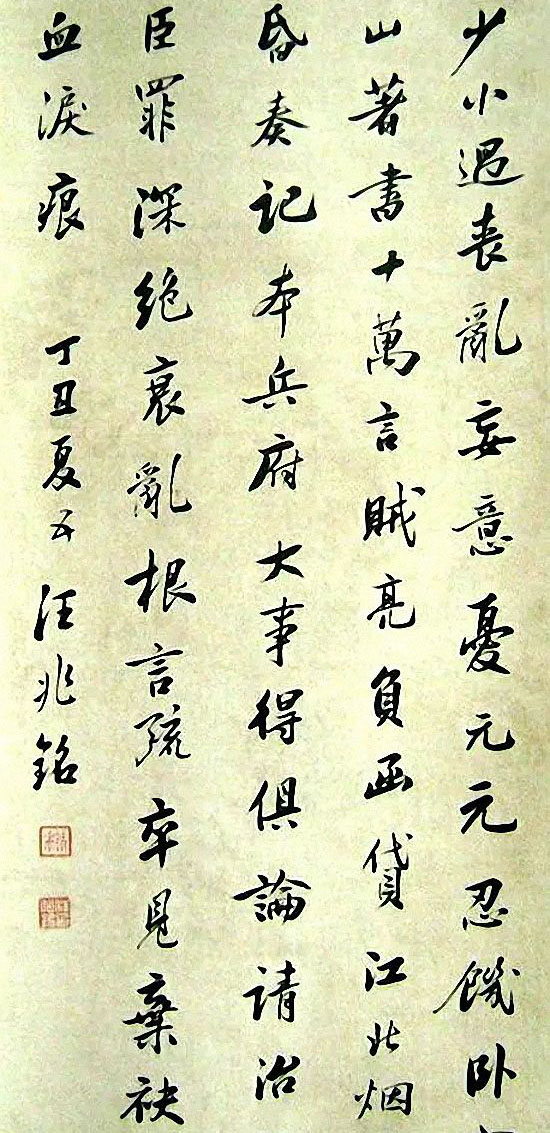 少小遇喪亂妄意憂元元忍饑卧
山著書十萬言賊亮負函貸江北烟
昏奏記本兵府大事得俱論請治
臣罪深絶衰亂根言疏卒見棄袂
血淚痕 丁丑夏五 汪兆銘